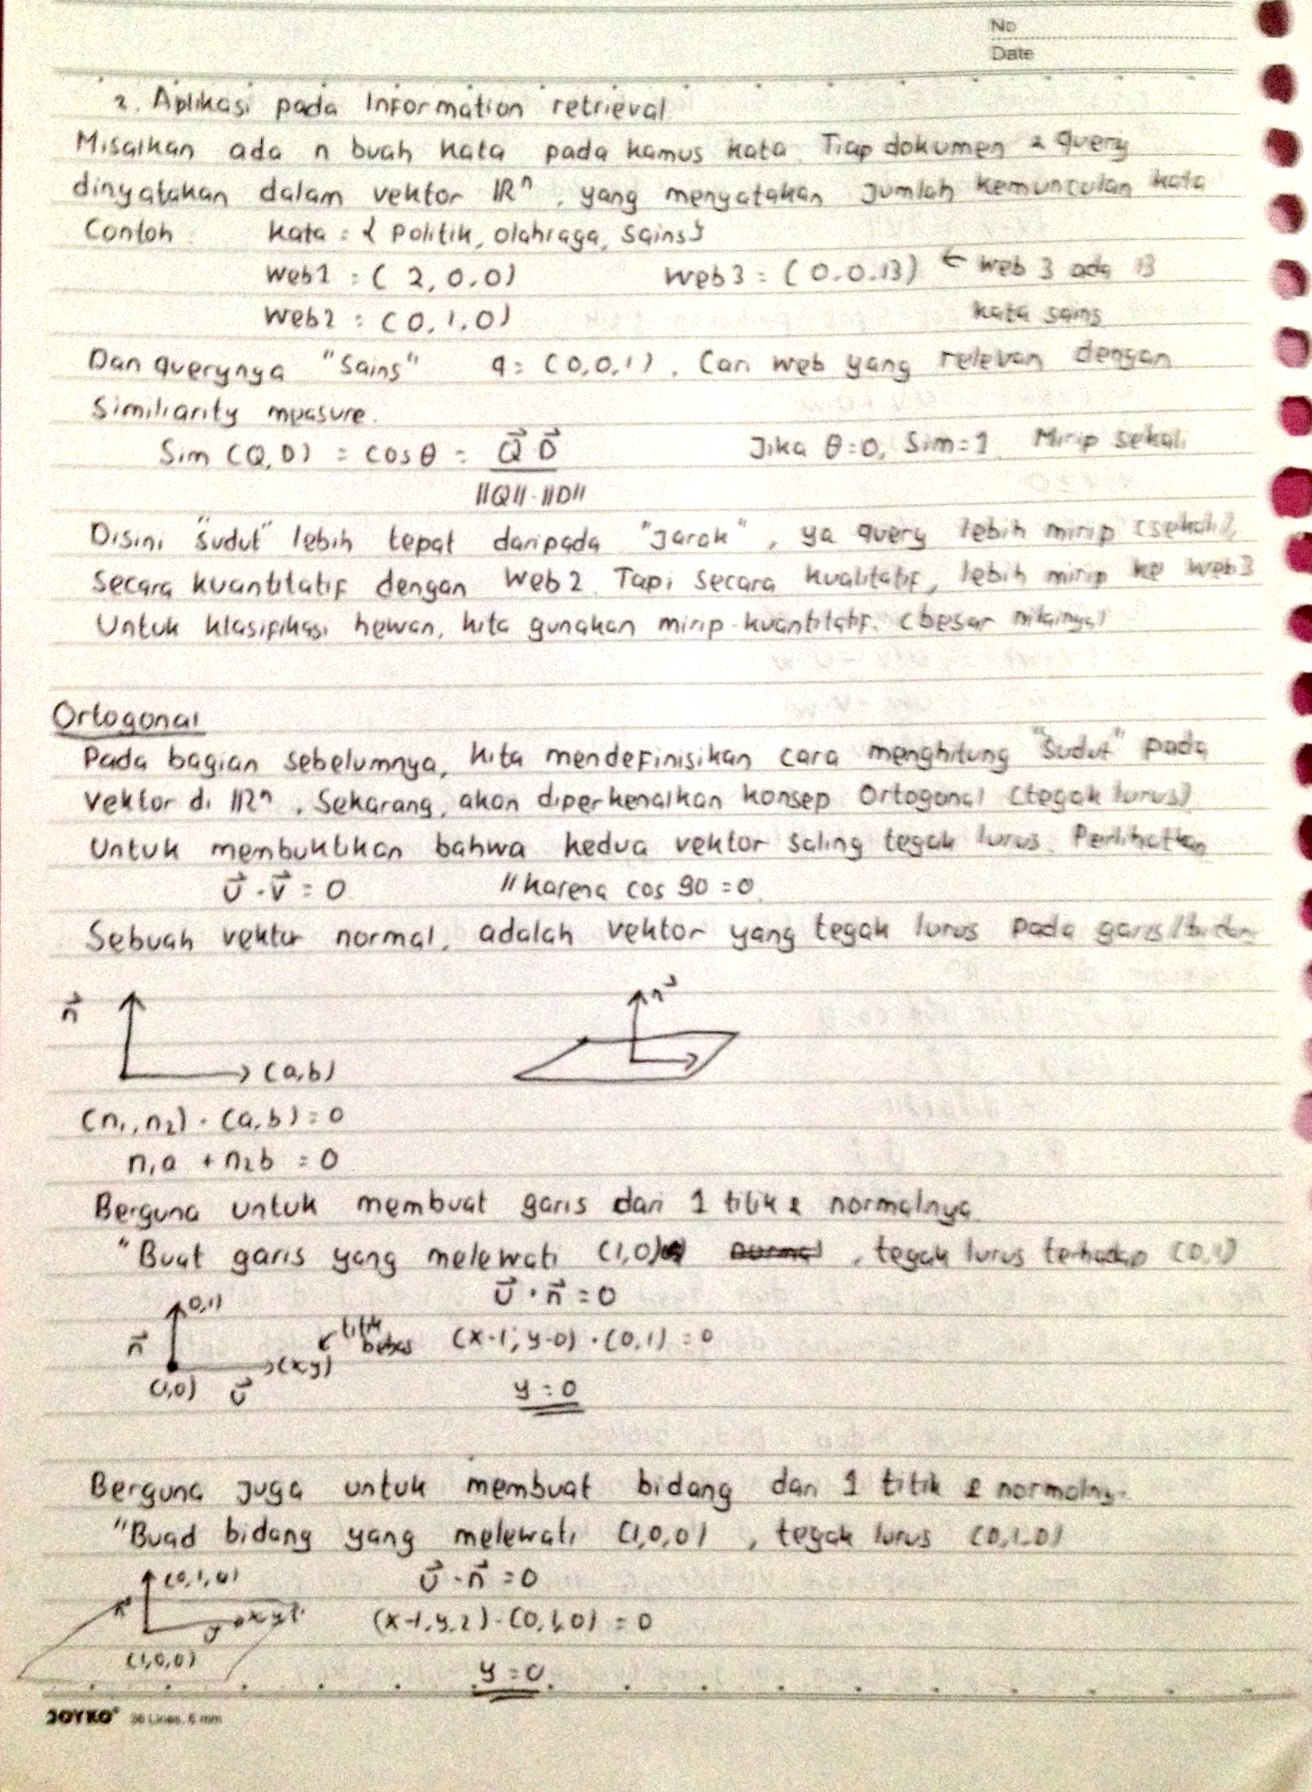 No
Date
2. Aplikasi pada Information retrieval
Misalkan ada n buah kata pada kamus kata. Tiap dokumen & query
dinyatakan dalam vektor IRⁿ, yang menyatakan jumlah kemunculan kata
Contoh : kata = { Politik, olahraga, Sains }
Web1 = ( 2, 0, 0 ) Web3 = ( 0, 0, 13 ) ← Web 3 ada 13
Web2 = ( 0, 1, 0 ) kata sains
Dan querynya "Sains" q = ( 0, 0, 1 ). Cari web yang relevan dengan
Similiarity measure.
Sim (Q, D) = cos θ = Q⃗ D⃗ / ||Q|| · ||D|| Jika θ = 0, Sim = 1 Mirip sekali
Disini "sudut" lebih tepat daripada "Jarak", ya query lebih mirip (sekali),
Secara kuantitatif dengan Web 2. Tapi secara kualitatif, lebih mirip ke Web3
Untuk klasifikasi hewan, kita gunakan mirip kuantitatif. (besar nilainya)
Ortogonal
Pada bagian sebelumnya, kita mendefinisikan cara menghitung "sudut" pada
vektor di IRⁿ. Sekarang, akan diperkenalkan konsep Ortogonal (tegak lurus)
Untuk membuktikan bahwa kedua vektor saling tegak lurus. Perlihatkan
U⃗ · V⃗ = 0 // karena cos 90 = 0.
Sebuah vektor normal, adalah vektor yang tegak lurus pada garis / bidang
n⃗ n⃗
(a,b)
(n₁, n₂) · (a, b) = 0
n₁a + n₂b = 0
Berguna untuk membuat garis dari 1 titik & normalnya
"Buat garis yang melewati (1,0) normal, tegak lurus terhadap (0,1)
0,1) U⃗ · n⃗ = 0
n⃗ (x,y) ↙ titik bebas (x-1, y-0) · (0, 1) = 0
(1,0) U⃗ y = 0
Berguna juga untuk membuat bidang dari 1 titik & normalny
"Buad bidang yang melewati (1,0,0), tegak lurus (0,1,0)
(0,1,0) U⃗ · n⃗ = 0
n U x,y,z (x-1, y, z) · (0, 1, 0) = 0
(1,0,0) y = 0
JOYKO 36 Lines, 6 mm